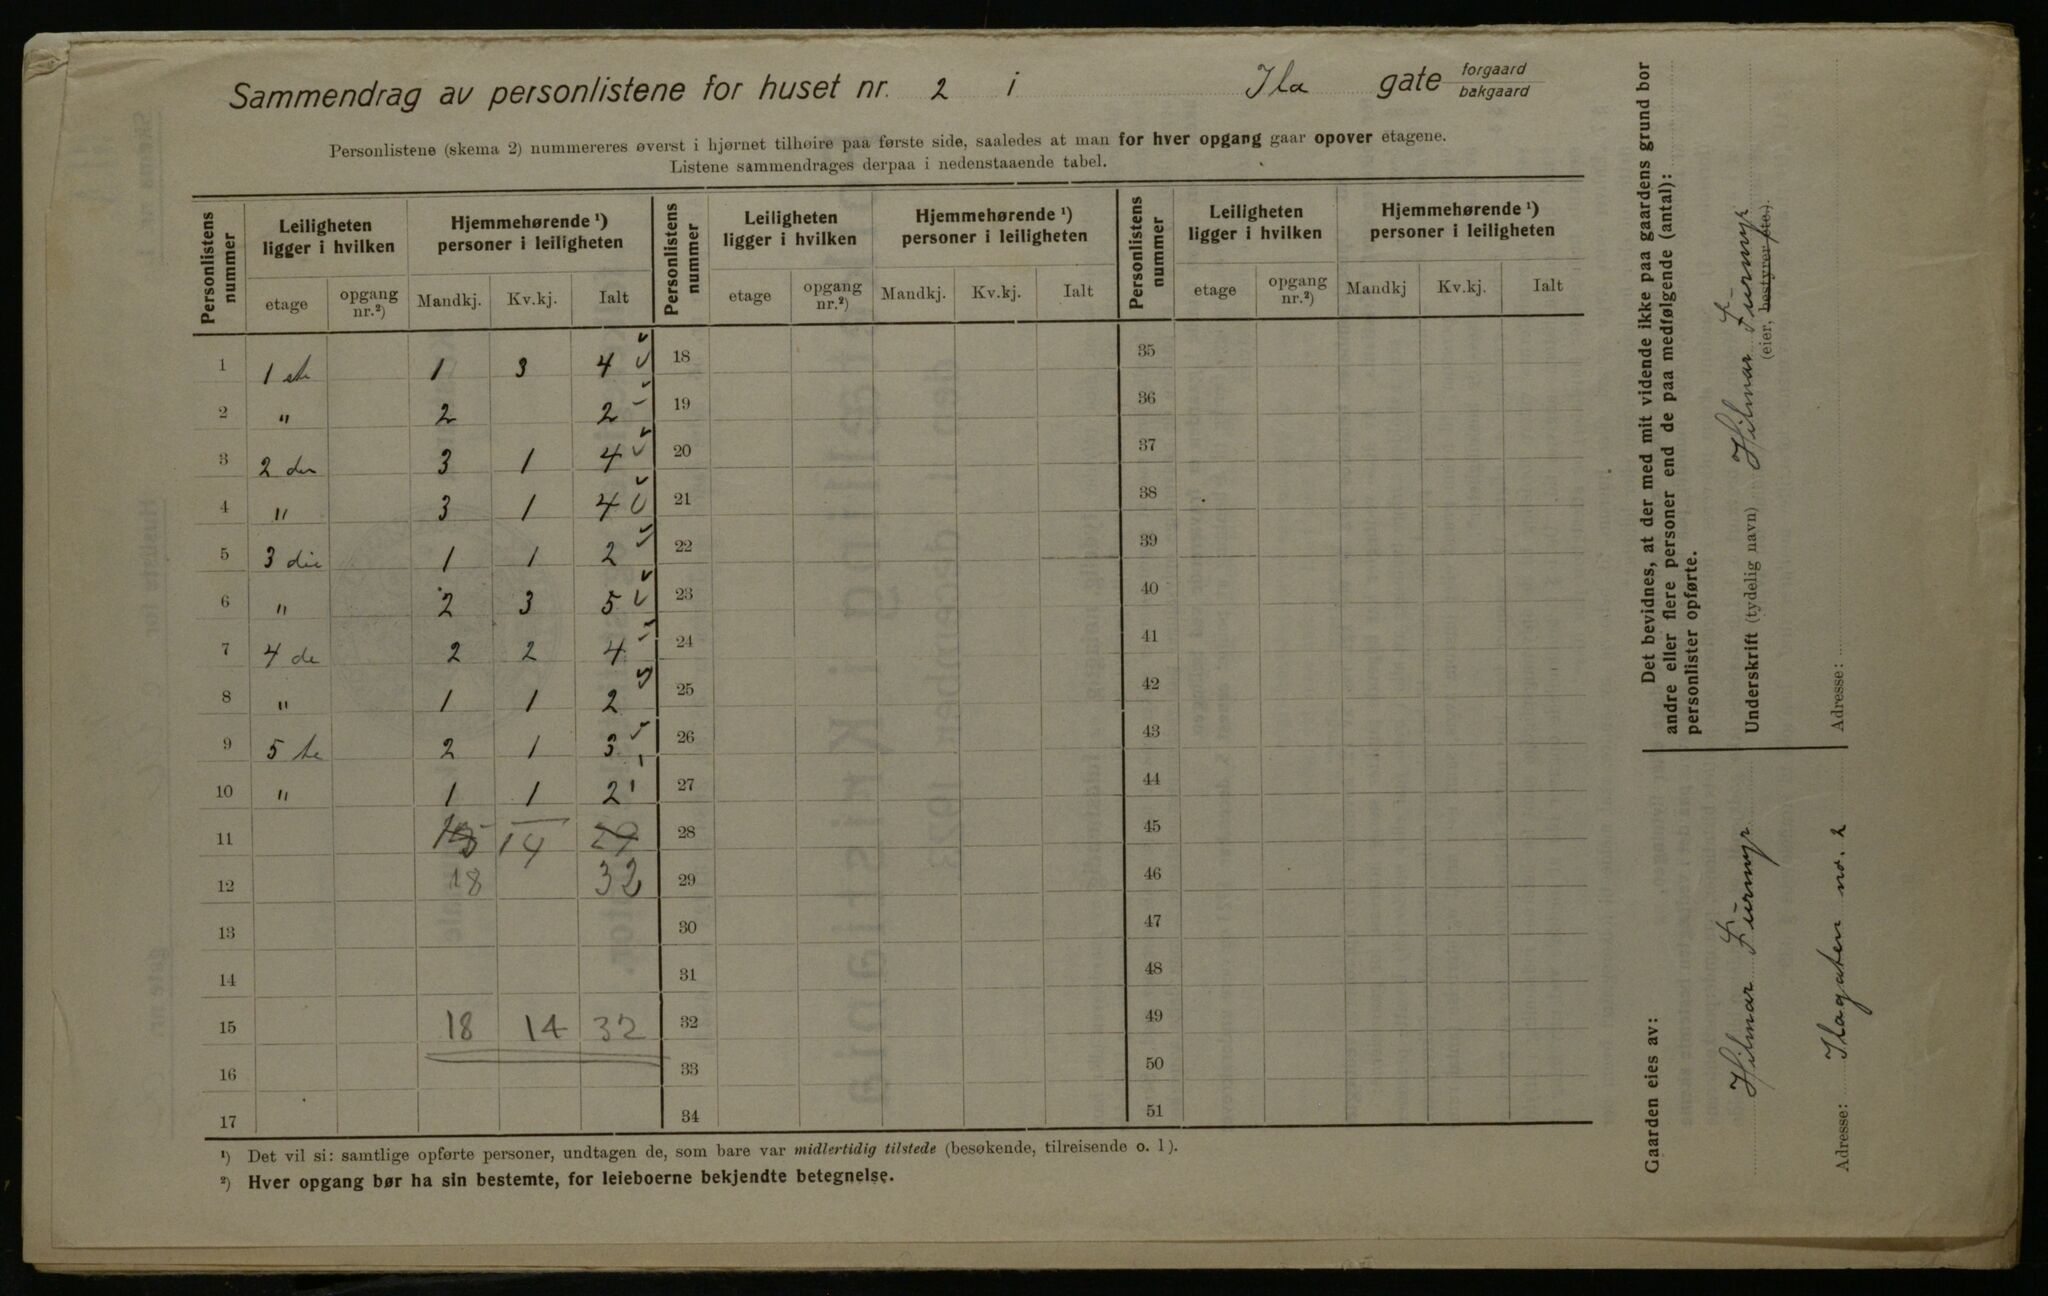 Sammendrag av personlistene for huset nr. 2 i Ila gate forgaard bakgaard
Personlistene (skema 2) nummereres øverst i hjørnet tilhøire paa første side, saaledes at man for hver opgang gaar opover etagene.
Listene sammendrages derpaa i nedenstaaende tabel.
Personlistens nummer | Leiligheten ligger i hvilken | Hjemmehørende ¹) personer i leiligheten | Personlistens nummer | Leiligheten ligger i hvilken | Hjemmehørende ¹) personer i leiligheten | Personlistens nummer | Leiligheten ligger i hvilken | Hjemmehørende ¹) personer i leiligheten
etage | opgang nr.²) | Mandkj. | Kv.kj. | Ialt | etage | opgang nr.²) | Mandkj. | Kv.kj. | Ialt | etage | opgang nr.²) | Mandkj | Kv.kj. | Ialt
1 | 1 ste | 1 | 3 | 4 | 18 | 35
2 | " | 2 | | 2 | 19 | 36
3 | 2 den | 3 | 1 | 4 | 20 | 37
4 | " | 3 | 1 | 4 | 21 | 38
5 | 3 die | 1 | 1 | 2 | 22 | 39
6 | " | 2 | 3 | 5 | 23 | 40
7 | 4 de | 2 | 2 | 4 | 24 | 41
8 | " | 1 | 1 | 2 | 25 | 42
9 | 5 te | 2 | 1 | 3 | 26 | 43
10 | " | 1 | 1 | 2 | 27 | 44
11 | | | 14 | 29 | 28 | 45
12 | | 18 | | 32 | 29 | 46
13 | 30 | 47
14 | 31 | 48
15 | | 18 | 14 | 32 | 32 | 49
16 | 33 | 50
17 | 34 | 51
¹) Det vil si: samtlige opførte personer, undtagen de, som bare var midlertidig tilstede (besøkende, tilreisende o. l).
²) Hver opgang bør ha sin bestemte, for leieboerne bekjendte betegnelse.
Det bevidnes, at der med mit vidende ikke paa gaardens grund bor
andre eller flere personer end de paa medfølgende (antal):
personlister opførte.
Underskrift (tydelig navn) Hilmar Furmyr
(eier, bestyrer etc.).
Adresse:
Gaarden eies av:
Hilmar Furmyr
Adresse: Ilagaten no. 2